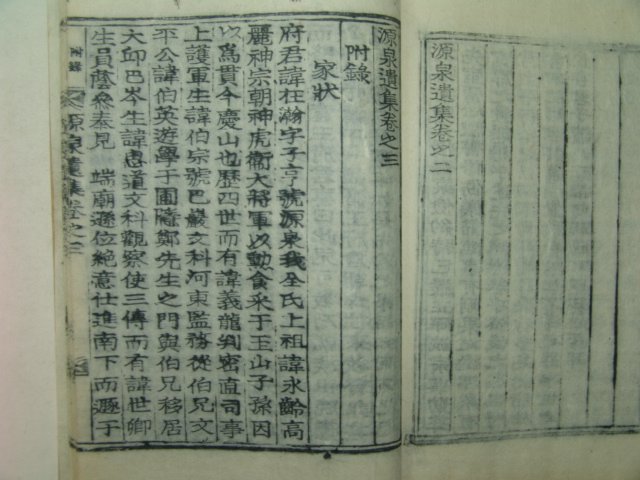 源泉遺集卷之二
源泉遺集卷之三
附錄
家狀
府君諱在瀚字子亨號源泉我全氏上祖諱永齡高
麗神宗朝神虎衛大將軍以勳食采于玉山子孫因
以爲貫今慶山也歷四世而有諱義龍判密直司事
上護軍生諱伯宗號巴巖文科河東監務從伯兄文
平公諱伯英遊學于圃隱鄭先生之門與伯兄移居
大邱巴岑生諱愚道文科觀察使三傳而有諱世卿
生員蔭參奉見 端廟遜位絶意仕進南下而遯于
附錄 源泉遺集卷之三